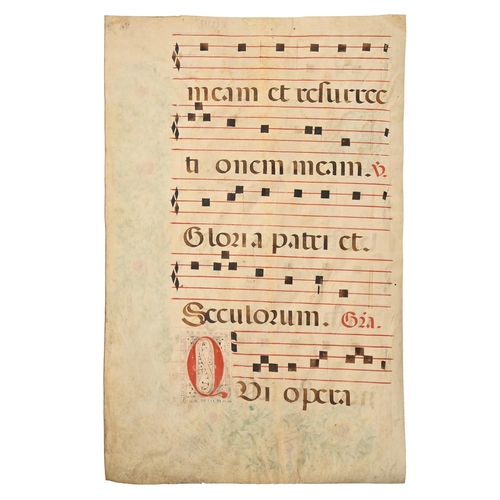 meam et resurrec
ti onem meam. V.
Gloria patri et.
Seculorum. Gra.
QVi opera